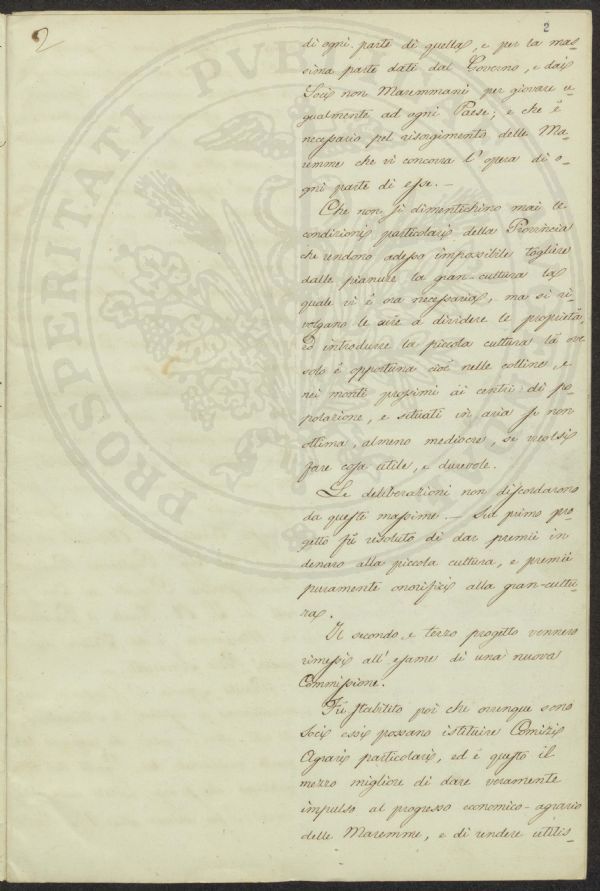 2
2
di ogni parte di quella, e per la mas-
sima parte dati dal Governo, e dai
Socj non Maremmani per giovare u-
gualmente ad ogni Paese; e che è
necessario pel risorgimento delle Ma-
remme che vi concorra l'opera di o-
gni parte di esse. —
Che non si dimentichino mai le
condizioni particolari della Provincia
che rendono adesso impossibile togliere
dalle pianure la gran-cultura la
quale vi è ora necessaria, ma si ri-
volgano le cure a dividere le proprietà,
ed introdurre la piccola cultura là ove
solo è opportuna cioè nelle colline, e
nei monti prossimi ai centri di po-
polazione, e situati in aria se non
ottima, almeno mediocre, se vuolsi
fare cosa utile, e durevole.
Le deliberazioni non discordarono
da queste massime. — Sul primo pro-
getto fù risoluto di dar premii in
denaro alla piccola cultura, e premii
puramente onorifici alla gran-cultu-
ra.
Il secondo, e terzo progetto vennero
rimessi all'esame di una nuova
Commissione.
Fù stabilito poi che ovunque sono
Socj essi possano istituire Comizi
Agrarj particolari, ed è questo il
mezzo migliore di dare veramente
impulso al progresso economico-agrario
delle Maremme, e di rendere utilis-
PROSPERITATI PUBLICAE